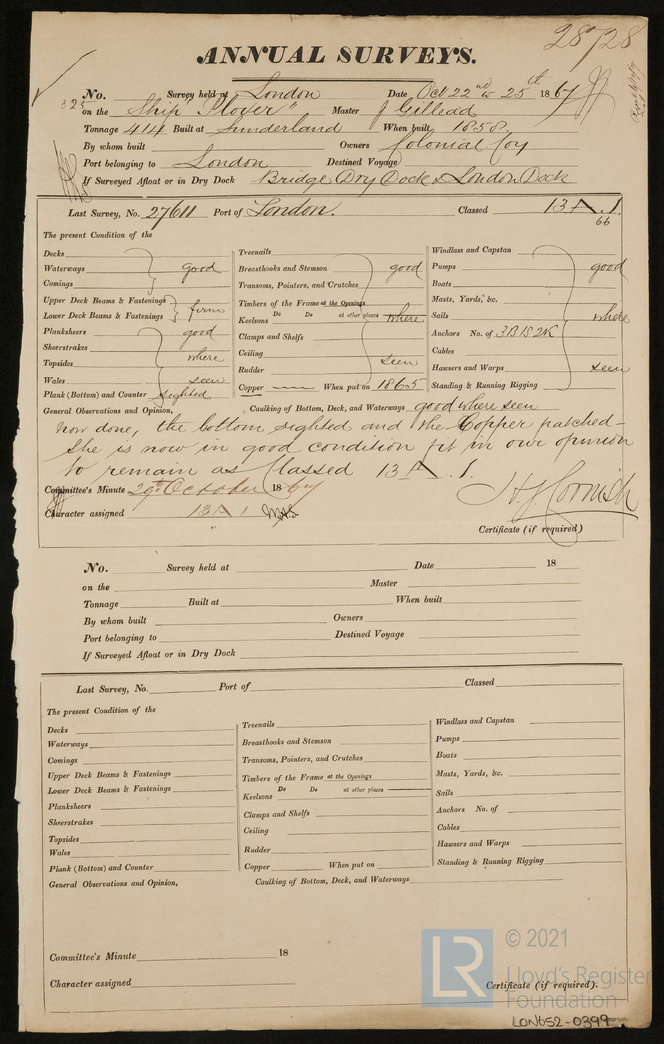 28728
ANNUAL SURVEYS.
No. Survey held at London Date Oct 22nd & 25th 1867
325 on the Ship "Plover" Master J Gillead
Tonnage 414 Built at Sunderland When built 1858
By whom built Owners Colonial Coy
Port belonging to London Destined Voyage
If Surveyed Afloat or in Dry Dock Bridge Dry Dock & London Dock
Last Survey, No. 27611 Port of London. Classed 13 A. 1.
66
The present Condition of the
Decks
Waterways good
Comings
Upper Deck Beams & Fastenings
Lower Deck Beams & Fastenings firm
Planksheers good
Sheerstrakes where
Topsides
Wales seen
Plank (Bottom) and Counter Sighted
Treenails
Breasthooks and Stemson good
Transoms, Pointers, and Crutches
Timbers of the Frame at the Openings
Do Do at other places where
Keelsons
Clamps and Shelfs
Ceiling
Rudder seen
Copper When put on 1865
Windlass and Capstan
Pumps good
Boats
Masts, Yards, &c.
Sails where
Anchors No. of 3B 1S 2K
Cables
Hawsers and Warps seen
Standing & Running Rigging
General Observations and Opinion, Caulking of Bottom, Deck, and Waterways good where seen
now done, the bottom sighted and the Copper patched -
She is now in good condition fit in our opinion
to remain as Classed 13 A. 1.
Committee's Minute 29th October 1867
Character assigned 13 A 1
J H J Cornish
Certificate (if required)
No. Survey held at Date 18
on the Master
Tonnage Built at When built
By whom built Owners
Port belonging to Destined Voyage
If Surveyed Afloat or in Dry Dock
Last Survey, No. Port of Classed
The present Condition of the
Decks
Waterways
Comings
Upper Deck Beams & Fastenings
Lower Deck Beams & Fastenings
Planksheers
Sheerstrakes
Topsides
Wales
Plank (Bottom) and Counter
Treenails
Breasthooks and Stemson
Transoms, Pointers, and Crutches
Timbers of the Frame at the Openings
Do Do at other places
Keelsons
Clamps and Shelfs
Ceiling
Rudder
Copper When put on
Windlass and Capstan
Pumps
Boats
Masts, Yards, &c.
Sails
Anchors No. of
Cables
Hawsers and Warps
Standing & Running Rigging
General Observations and Opinion, Caulking of Bottom, Deck, and Waterways
Committee's Minute 18
Character assigned
Certificate (if required).
LR
© 2021
Lloyd's Register
Foundation
LON652-0399